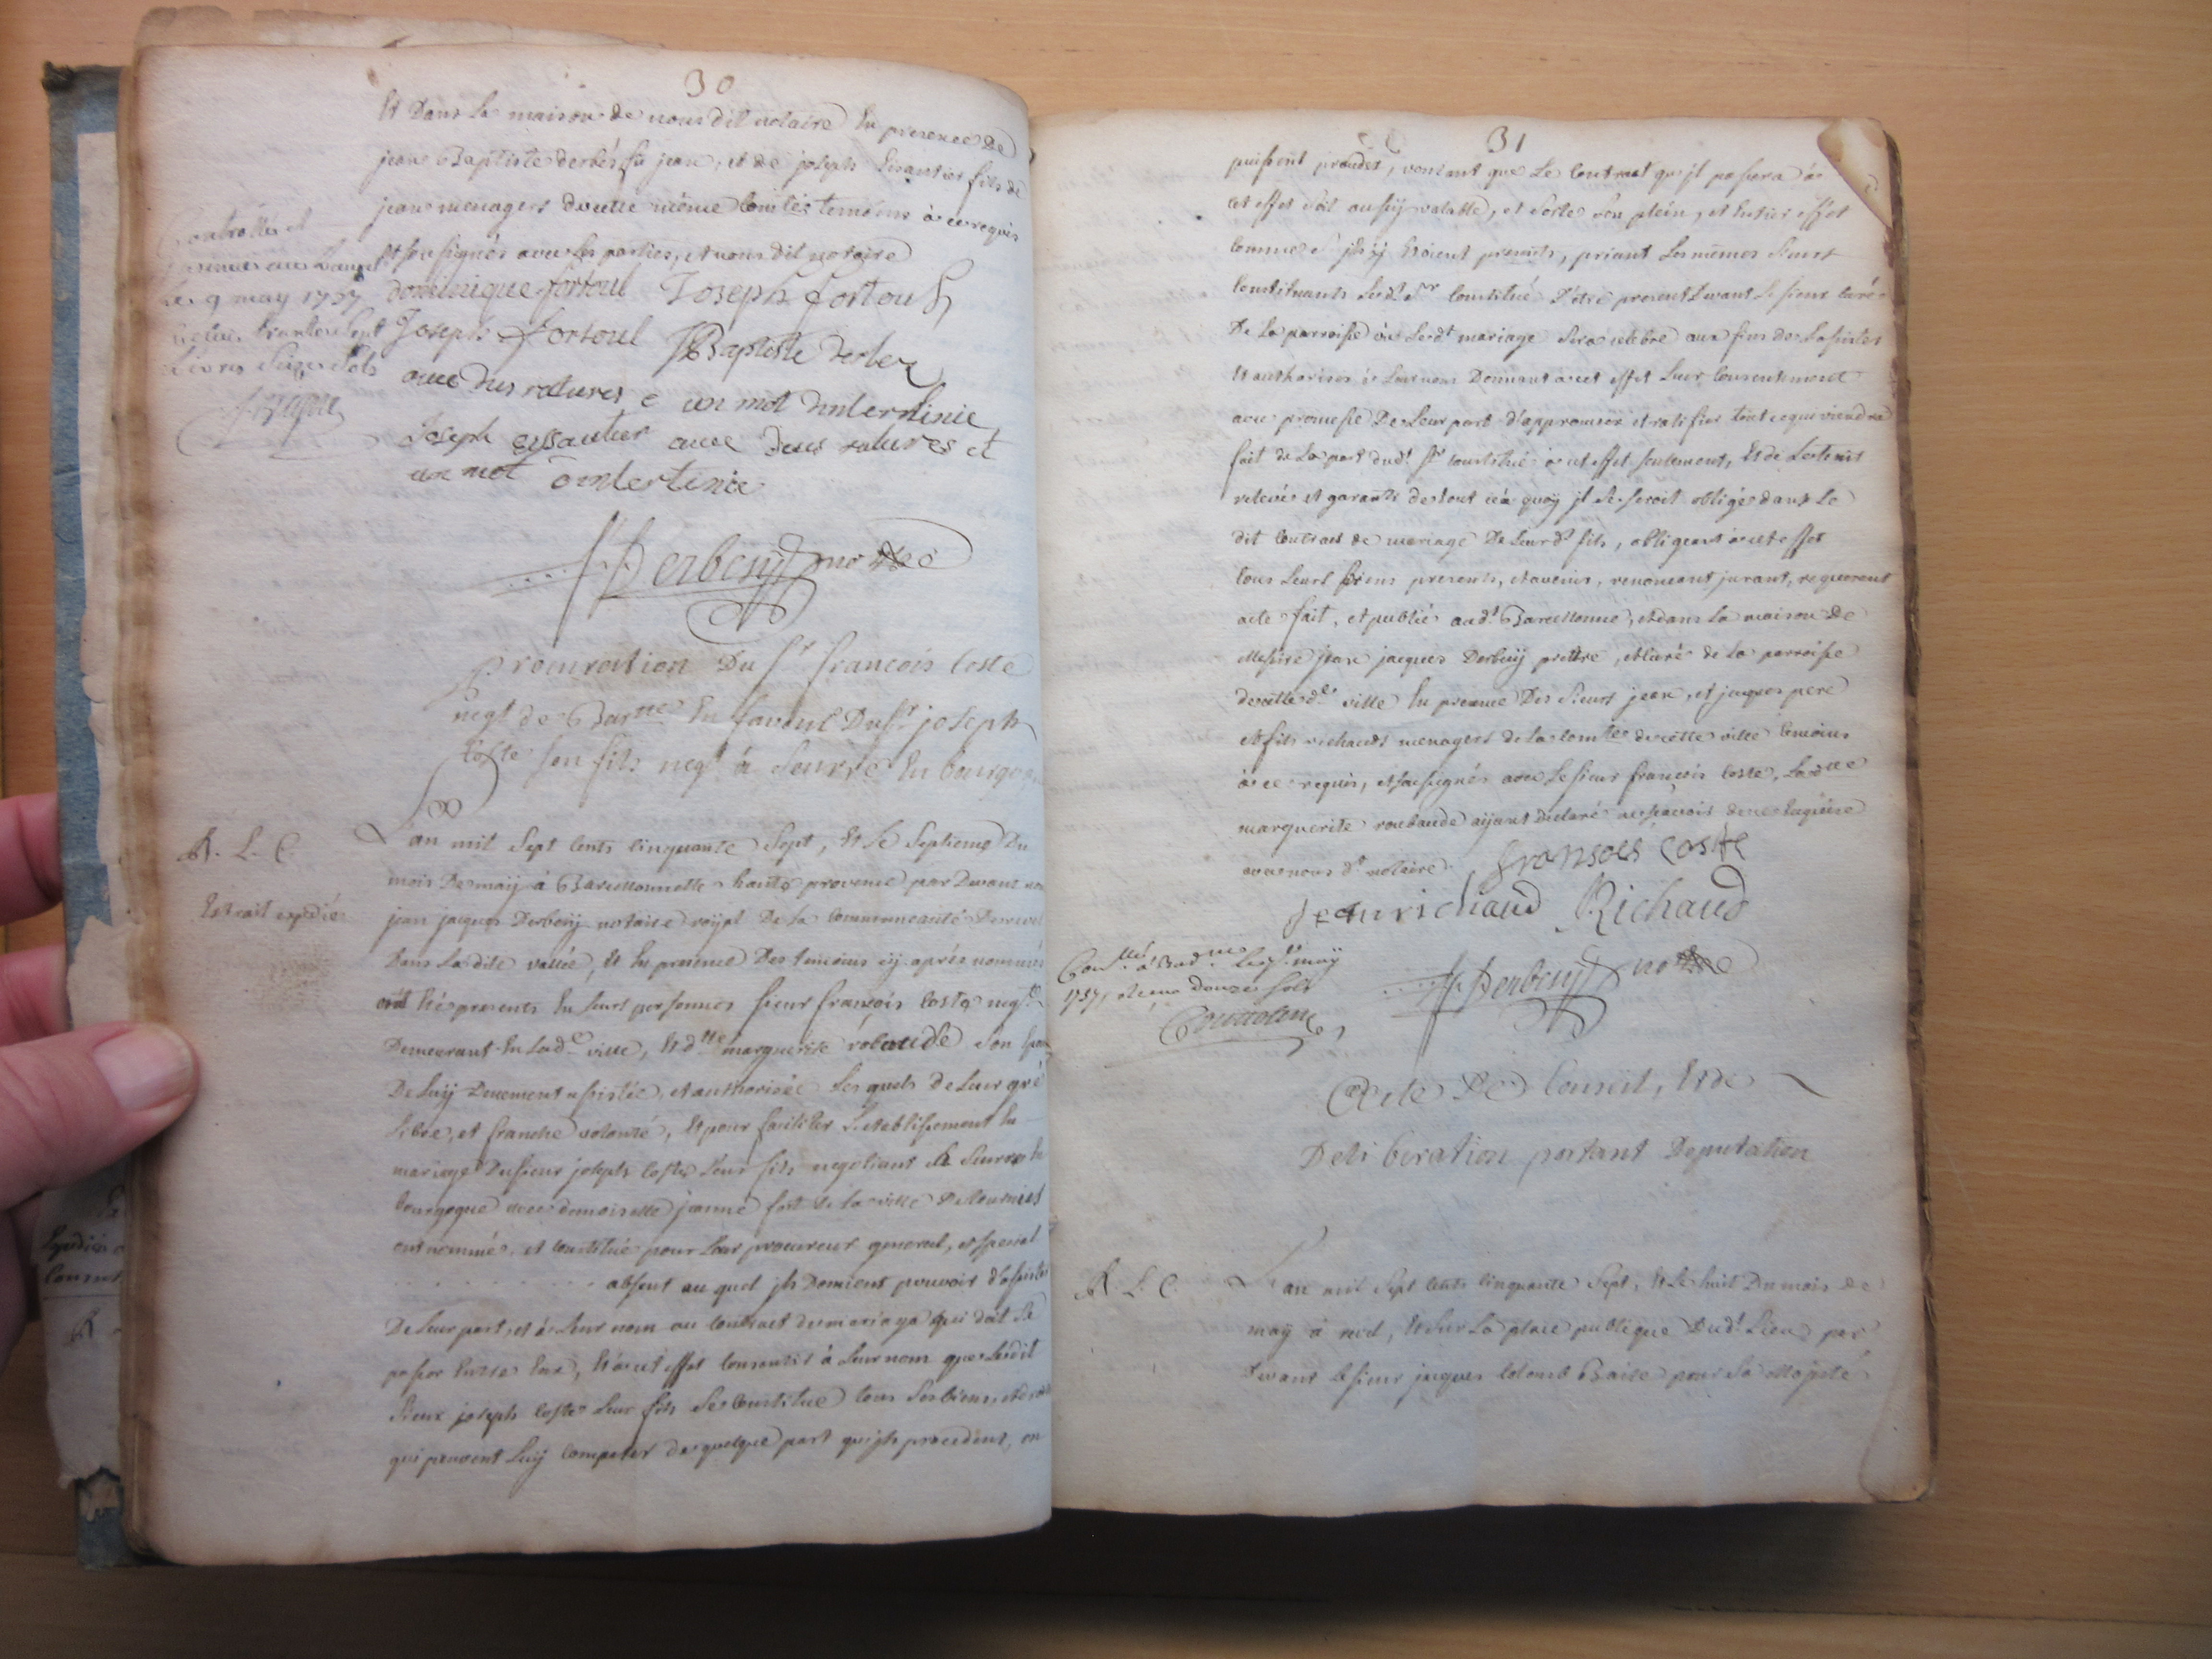 30
Et Dans la maison de nous dit notaire En presence De
jean Baptiste derbés fu jean, et de joseph Eisautier fils de
jean menagers de cette même Comtée temoins à ce requis
Et sousignés avec les parties, et nous dit notaire
Controllé et
Le 9 may 1757
Livres Seize Sols
dominique fortoul Joseph fortoul
Joseph fortoul JBaptiste derbez
avec deus ratures e un mot dinterlinie
Joseph eissautier avec deus ratures et
un mot dinterlinie
Derbesy nottre
procuration Du Sr francois Coste
negt de Barnne En faveur Du Sr joseph
Coste son fils negt à Seurre En bourgogne
R. L. C.
Extrait expedié
L'an mil Sept Cents Cinquante Sept, Et le Septieme Du
mois De maÿ à Barcellonnette haute provence par Devant nous
jean jacques Derbesy notaire roÿal De la Communeauté De
Dans la dite vallée, Et En presence Des temoins cÿ aprés nommés
ont Eté presents En leurs personnes Sieur françois Coste negt
Demeurant En lade ville, Et dlle marguerite robaude Son Epouse
De luÿ Duement assistée, et authorisée Les quels de leur gré
libre, et franche volonté, Et pour faciliter L'etablissement En
mariage Du Sieur joseph Coste Leur fils negotiant à Seurre En
bourgogne avec demoiselle jeanne fait de la ville De
ont nommé, et Constitué pour Leur procureur general, et special
absent au quel ils Donnent pouvoir d'assister
De leur part, et à Leur nom au Contract de mariage qui doit Se
passer Entre Eux, Et à cet effet Consentir à Leur nom que ledit
Sieur joseph Coste Leur fils Se Constitue tous Ses biens, et droits
qui peuvent Luÿ Competer de quelque part qu'ils procedent, ou
31
puissent proceder, voulant que Le Contract qu'il passera à
cet effet Soit aussÿ valable, et Sorte Son plein, et Entier effet
Comme S'ils ÿ Etoient presents, priant Les mêmes Sieurs
Constituants Ledt Sr Constitué D'être present Devant Le Sieur Curé
De La parroisse où Ledt mariage Sera celebré aux fins de L'assister
Et authoriser à Leur nom Donnant à cet effet Leur Consentement
avec promesse De Leur part d'approuver et ratifier tout ce qui viendra
fait de La part dudt Sr Constitué à cet effet Seulement, Et de Le tenir
relevé et garanti de tout ce à quoÿ il Se Seroit obligé dans Le
dit Contract de mariage De Leurdt fils, obligeant à cet effet
tous Leurs biens presents, et avenir, renoncant jurant, requerant
acte fait, et publié audt Barcellonne, et dans La maison De
Messire jean jacques Derbesy prêtre, et Curé de la parroisse
de cette de ville En presence Des Sieurs jean, et jacques pere
et fils richauds menagers de la Comtée de cette ville temoins
à ce requis, et sousignés avec le Sieur françois Coste, La dlle
marguerite robaude aÿant Declaré ne Scavoir de ce Enquise
avec nous dt notaire. fransois Coste
Jean richaud Richaud
Conllé à Barnne Le 9 maÿ
1757, reçu Douze Sols
Derbesy nottre
Acte De Conseil, Et de
Deliberation portant Deputation
R. L. C.
L'an mil Sept Cents Cinquante Sept, Et Le huit Du mois de
maÿ à midi, Et Sur La place publique Dudt Lieu par
devant Le Sieur jacques Colomb Baile pour Sa Majesté